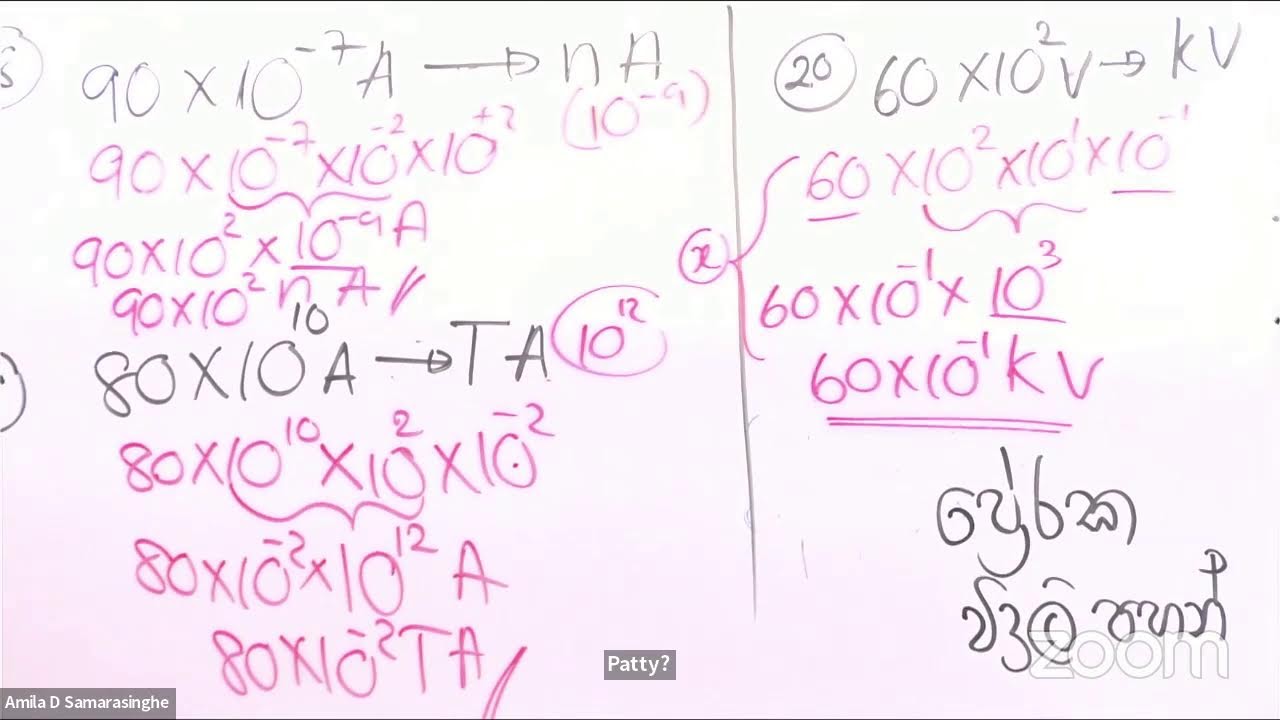 90 × 10⁻⁷ A → nA
(10⁻⁹)
90 × 10⁻⁷ × 10⁻² × 10⁺²
90 × 10² × 10⁻⁹ A
90 × 10² nA
80 × 10¹⁰ A → TA 10¹²
80 × 10¹⁰ × 10² × 10⁻²
80 × 10⁻² × 10¹² A
80 × 10⁻² TA
20 60 × 10² V → kV
60 × 10² × 10¹ × 10⁻¹
x
60 × 10⁻¹ × 10³
60 × 10⁻¹ kV
ප්‍රේරක
විදුලි පහන්
zoom
Patty?
Amila D Samarasinghe